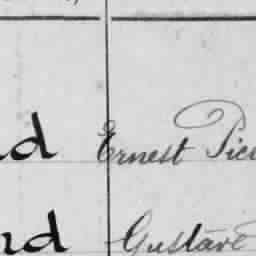 nd Ernest Pic
nd Gustave